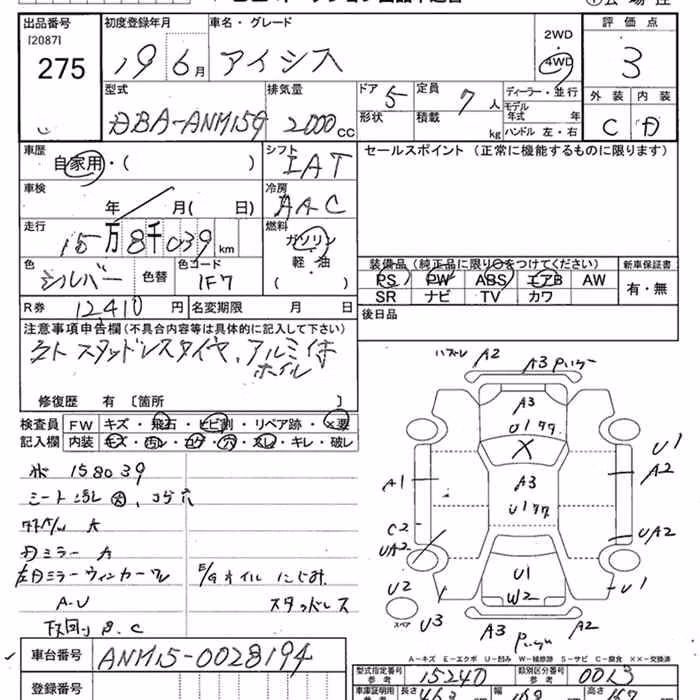 出品番号 初度登録年月 車名・グレード 2WD 評価点
[2087]
275 19 6月 アイシス 4WD 3
型式 排気量 ドア 5 定員 7人 ディーラー・並行 外装 内装
DBA-ANM15G 2000cc 形状 積載 kg モデル年式 年 ハンドル 左・右 C D
車歴 シフト セールスポイント (正常に機能するものに限ります)
自家用・( ) IAT
車検 冷房
年 月( 日) AAC
走行 燃料
15万8千039km ガソリン
軽・油
色 カラーコード 装備品(純正品に限り○をつけてください) 新車保証書
シルバー 色替 1F7 ( ) PS PW ABS エアB AW 有・無
SR ナビ TV カワ
R券 12410円 名変期限 月 日 後日品
注意事項申告欄(不具合内容等は具体的に記入して下さい)
スタッドレスタイヤ、アルミ付
ホイル
修復歴 有〔箇所 〕
検査員 FW キズ・飛石・ヒビ割・リペア跡・×要
記入欄 内装 キズ・汚レ・コゲ・穴・スレ・キレ・破レ
158039
シート汚レ 大、コゲ穴
ミラー A
ミラーウィンカーワレ E/Gオイルにじみ
A-U スタッドレス
下回り S.C
A2 A3
A3
U1
X
A1 A3 U1
A2
C2 UA2
UA2
U2 U1 U1
W2
スペア U3 A3 A2
A-キズ E-エクボ U-凹み W-補修跡 S-サビ C-腐食 ××-交換済
車台番号 ANM15-0028194 型式指定番号 参考 15240 類別区分番号 参考 0013
登録番号 長さ 幅